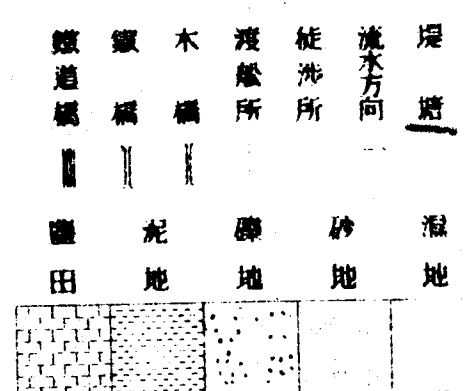 堤塘
流水方向
徒涉所
渡船所
木橋
鐵橋
鐵道橋
濕地
砂地
礫地
泥地
鹽田